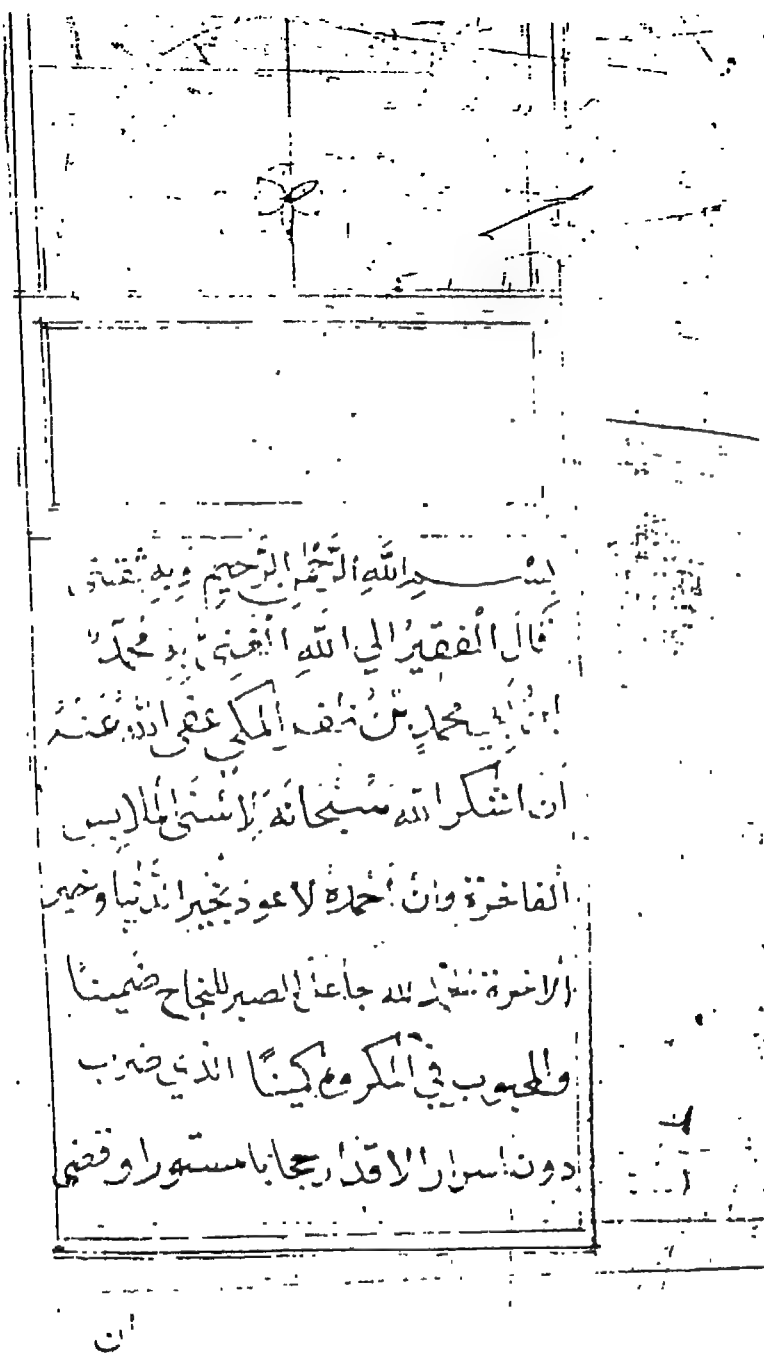 بســـم اللهِ الرَّحْمٰنِ الرَّحِيمِ وَبِهِ ثِقَتى
قَالَ الْفقيرُ الي اللهِ الْغنِىّ بِهِ مُحمّدُ
ابْنُ أَبِي محمدٍ بْنُ ظفر المكي عفى اللهُ عَنْهُ
أن اشكر الله سُبْحَانَهُ لأَسْنَى المَلابِس
الفاخرة وان أحمدهُ لاعوذ بخير الدُنْيا وخير
الاخرة لله جاعل الصبر للنجاح ضَمِينًا
والمحبوب فِي المكروه كَمِينًا الذي ضرب
دون اسرار الاقدار حجابا مستورا وقضى
ان